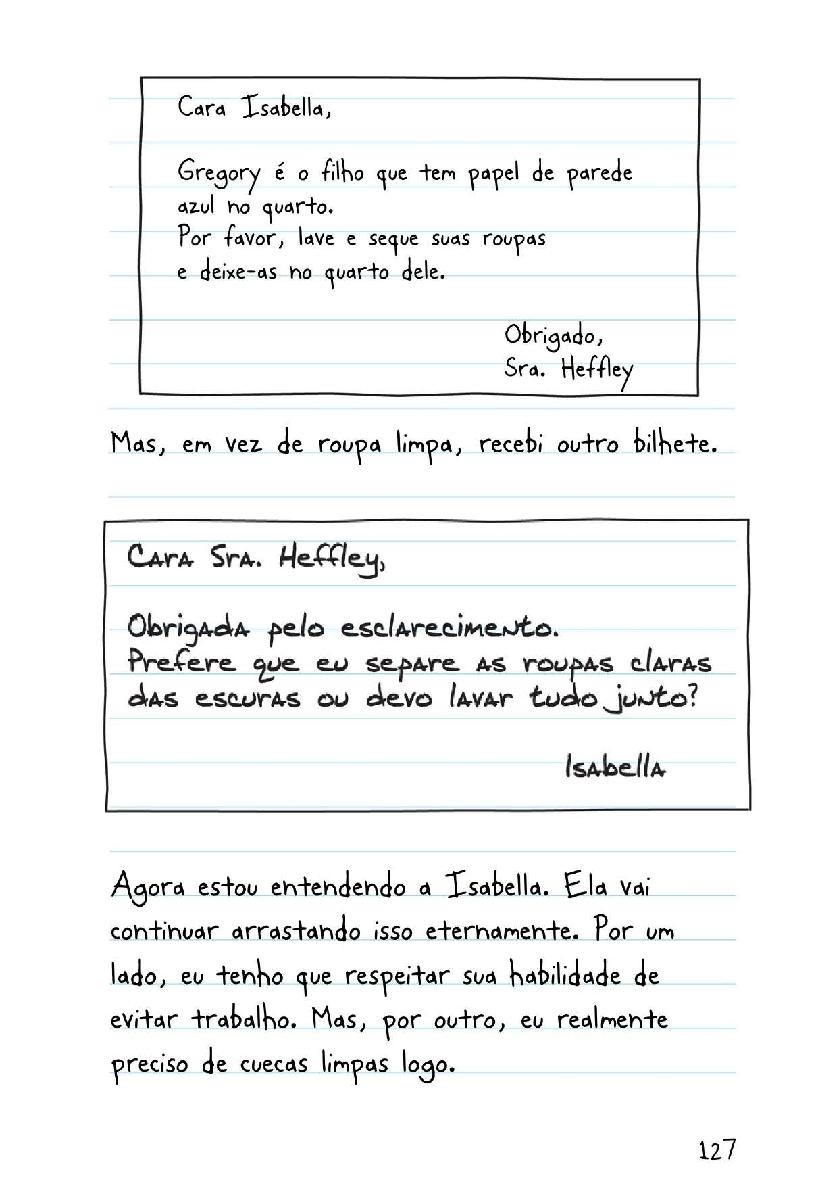 Cara Isabella,
Gregory é o filho que tem papel de parede
azul no quarto.
Por favor, lave e seque suas roupas
e deixe-as no quarto dele.
Obrigado,
Sra. Heffley
Mas, em vez de roupa limpa, recebi outro bilhete.
Cara Sra. Heffley,
Obrigada pelo esclarecimento.
Prefere que eu separe as roupas claras
das escuras ou devo lavar tudo junto?
Isabella
Agora estou entendendo a Isabella. Ela vai
continuar arrastando isso eternamente. Por um
lado, eu tenho que respeitar sua habilidade de
evitar trabalho. Mas, por outro, eu realmente
preciso de cuecas limpas logo.
127